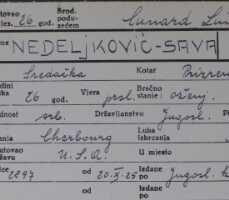 utovao
les. 26 god. Brod. podu- zećem Cunard Li
NEDELJKOVIĆ-SAVA
Sredačka Kotar Prizren
26 god. Vjera prsl. Bračno stanje: oženj.
srb. Državljanstvo Jugosl.
Cherbourg Luka Iskrcanja
utovao U.S.A. U mjesto
2897 od 20.X-25 Izdane po Jugosl. k
od Izdane